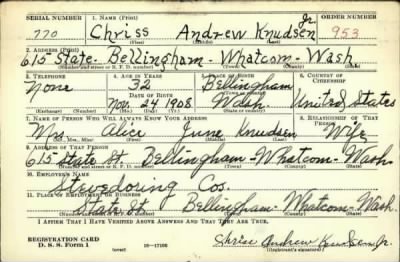 SERIAL NUMBER 1. NAME (Print) ORDER NUMBER
770 Chriss Andrew Knudsen Jr. 953
(First) (Middle) (Last)
2. ADDRESS (Print)
615 State - Bellingham - Whatcom - Wash.
3. TELEPHONE 4. AGE IN YEARS 5. PLACE OF BIRTH 6. COUNTRY OF CITIZENSHIP
None 32 Bellingham
DATE OF BIRTH
Nov. 24 1908 Wash. United States
(Exchange) (Number) (Mo.) (Day) (Yr.) (State or country)
7. NAME OF PERSON WHO WILL ALWAYS KNOW YOUR ADDRESS 8. RELATIONSHIP OF THAT PERSON
Mrs. Alice June Knudsen Wife
(Mr., Mrs., Miss) (First) (Middle) (Last)
9. ADDRESS OF THAT PERSON
615 State St. Bellingham - Whatcom - Wash.
(Number and street or R. F. D. number) (Town) (County) (State)
10. EMPLOYER'S NAME
Stevedoring Cos.
11. PLACE OF EMPLOYMENT OR BUSINESS
State St Bellingham - Whatcom - Wash.
(Number and street or R. F. D. number) (Town) (County) (State)
I AFFIRM THAT I HAVE VERIFIED ABOVE ANSWERS AND THAT THEY ARE TRUE.
REGISTRATION CARD
D. S. S. Form 1 (over) 16—17105 Chriss Andrew Knudsen Jr.
(Registrant's signature)